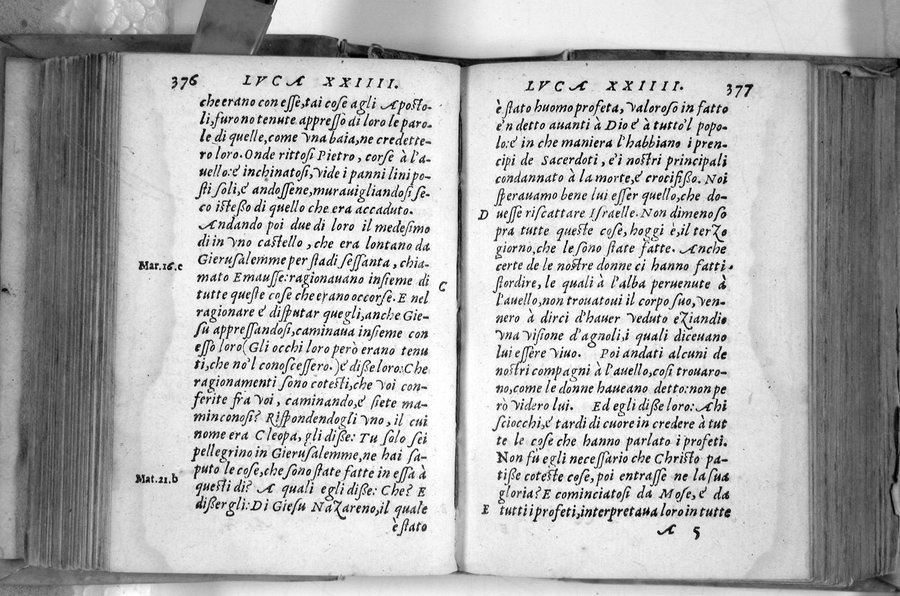 376 LVCA XXIIII.
che erano con esse, tai cose agli Aposto-
li, furono tenute appresso di loro le paro-
le di quelle, come vna baia, ne credette-
ro loro. Onde rittosi Pietro, corse à l'a-
uello: é inchinatosi, vide i panni lini po-
sti soli, é andossene, murauigliandosi se-
co istesso di quello che era accaduto.
Andando poi due di loro il medesimo
di in vno castello, che era lontano da
Mar.16.c Gierusalemme per stadi sessanta, chia-
mato Emausse: ragionauano insieme di
C
tutte queste cose che erano occorse. E nel
ragionare é disputar quegli, anche Gie-
sù appressandosi, caminaua insieme con
esso loro (Gli occhi loro però erano tenu
ti, che no'l conoscessero.) é disse loro: Che
ragionamenti sono cotesti, che voi con-
ferite fra voi, caminando, é siete ma-
minconosi? Rispondendogli vno, il cui
nome era Cleopa, gli disse: Tu solo sei
pellegrino in Gierusalemme, ne hai sa-
puto le cose, che sono state fatte in essa à
Mat.21.b questi di? A quali egli disse: Che? E
dissergli: Di Giesu Nazareno, il quale
è stato
LVCA XXIIII. 377
è stato huomo profeta, valoroso in fatto
e'n detto auanti à Dio é à tutto'l popo-
lo: é in che maniera l'habbiano i pren-
cipi de Sacerdoti, e'i nostri principali
condannato à la morte, é crocifisso. Noi
sperauamo bene lui esser quello, che do-
D uesse riscattare Israelle. Non dimeno so
pra tutte queste cose, hoggi è, il terzo
giorno, che le sono state fatte. Anche
certe de le nostre donne ci hanno fatti
stordire, le quali à l'alba peruenute à
l'auello, non trouatoui il corpo suo, ven-
nero à dirci d'hauer veduto eziandio
vna visione d'agnoli, i quali diceuano
lui essere viuo. Poi andati alcuni de
nostri compagni à l'auello, cosi trouaro-
no, come le donne haueano detto: non pe
rò videro lui. Ed egli disse loro: Ahi
sciocchi, é tardi di cuore in credere à tut
te le cose che hanno parlato i profeti.
Non fu egli necessario che Christo pa-
tisse coteste cose, poi entrasse ne la sua
gloria? E cominciatosi da Mose, é da
E tutti i profeti, interpretaua loro in tutte
A 5